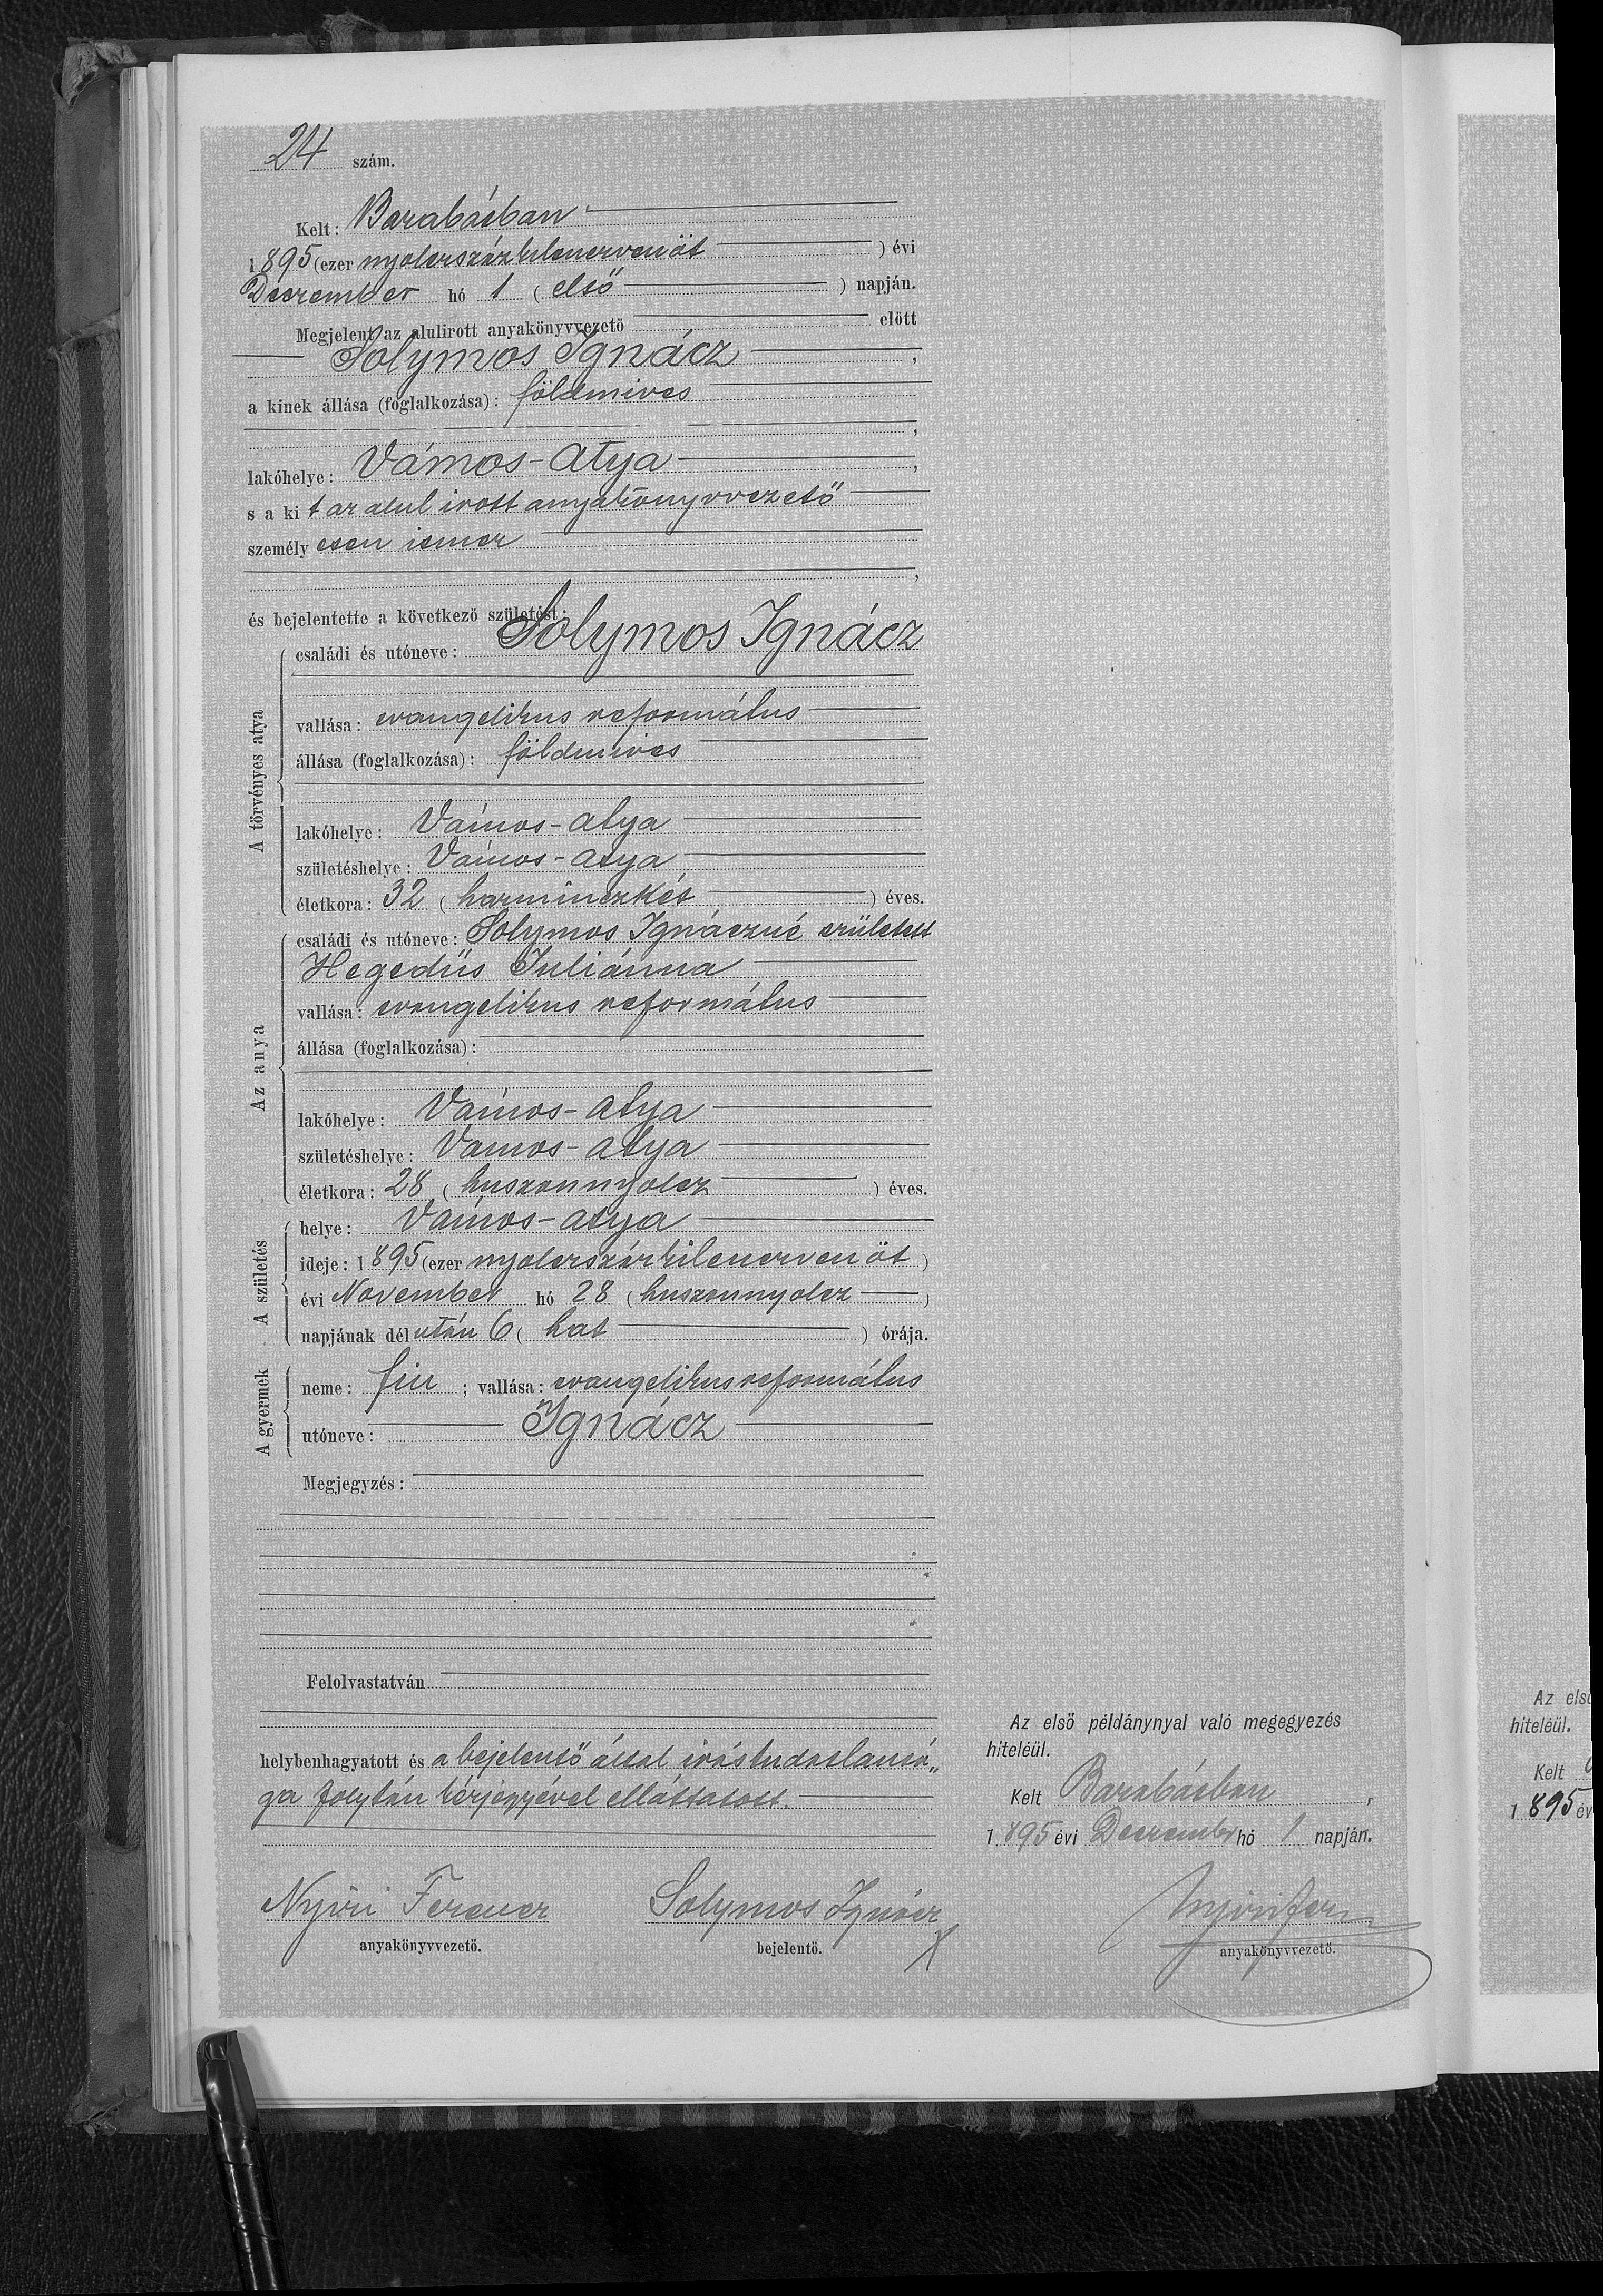 24 szám.
Kelt: Barabásban
1895 (ezer nyolczszázkilenczvenöt ) évi
Deczember hó 1 ( első ) napján.
Megjelent az alulirott anyakönyvvezető előtt
Solymos Ignácz ,
a kinek állása (foglalkozása): földmives
,
lakóhelye: Vámos-Atya ,
s a ki t az alul irott anyakönyvvezető
személy esen ismer
,
és bejelentette a következő születést:
A törvényes atya
családi és utóneve: Solymos Ignácz
vallása: evangelikus református
állása (foglalkozása): földmives
lakóhelye: Vámos-atya
születéshelye: Vámos-atya
életkora: 32 ( harminczkét ) éves.
Az anya
családi és utóneve: Solymos Ignáczné született
Hegedüs Juliánna
vallása: evangelikus református
állása (foglalkozása):
lakóhelye: Vámos-atya
születéshelye: Vamos-atya
életkora: 28 ( huszonnyolcz ) éves.
A születés
helye: Vámos-atya
ideje: 1895 (ezer nyolczszázkilenczvenöt )
évi November hó 28 ( huszonnyolcz )
napjának dél után 6 ( hat ) órája.
A gyermek
neme: fiu ; vallása: evangelikus református
utóneve: Ignácz
Megjegyzés:
Felolvastatván
helybenhagyatott és a bejelentő által irástudatlansá„
ga folytán kézjegyével elláttatott.
Nyiri Ferencz Solymos Ignácz X
anyakönyvvezető. bejelentő.
Az első példánynyal való megegyezés
hiteléül.
Kelt Barabásban ,
1895 évi Deczember hó 1 napján.
Nyiri Fer
anyakönyvvezető.
Az els
hiteléül.
Kelt
1895 év